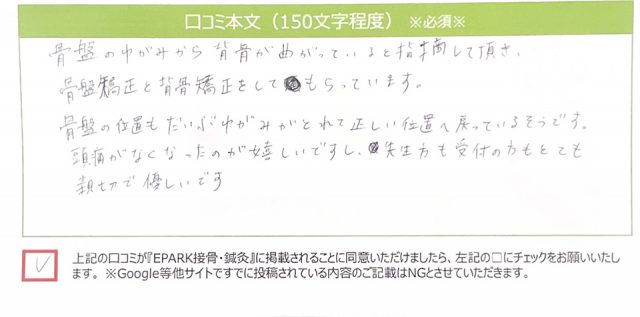 口コミ本文（150文字程度）※必須※
骨盤のゆがみから背骨が曲がっていると指摘して頂き、
骨盤矯正と背骨矯正をしてもらっています。
骨盤の位置もだいぶゆがみがとれて正しい位置へ戻っているそうです。
頭痛がなくなったのが嬉しいですし、先生方も受付の方もとても
親切で優しいです
上記の口コミが『EPARK接骨・鍼灸』に掲載されることに同意いただけましたら、左記の□にチェックをお願いいたし
ます。※Google等他サイトですでに投稿されている内容のご記載はNGとさせていただきます。